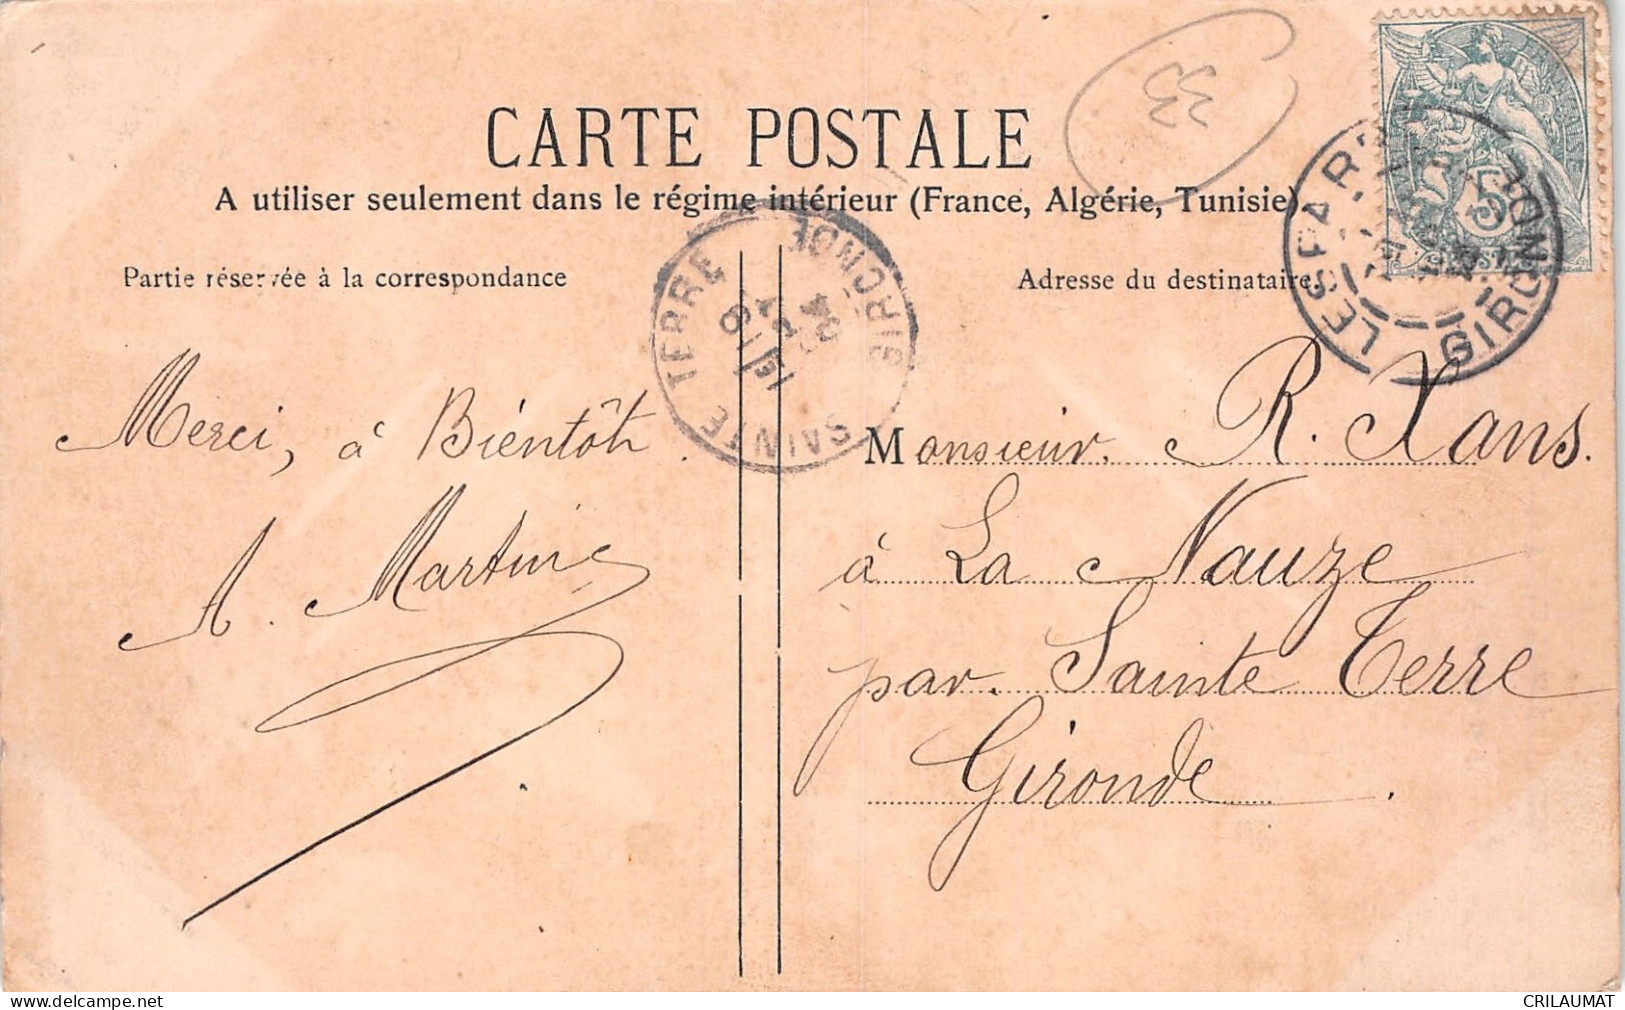 33
CARTE POSTALE
A utiliser seulement dans le régime intérieur (France, Algérie, Tunisie).
Partie réservée à la correspondance
Adresse du destinataire
LESPARRE
GIRONDE
5
SAINTE TERRE
GIRONDE
04
Merci, à Bientôt.
A. Martin
Monsieur. R. Xans.
à La Nauze
par. Sainte Terre
Gironde.
CRILAUMAT